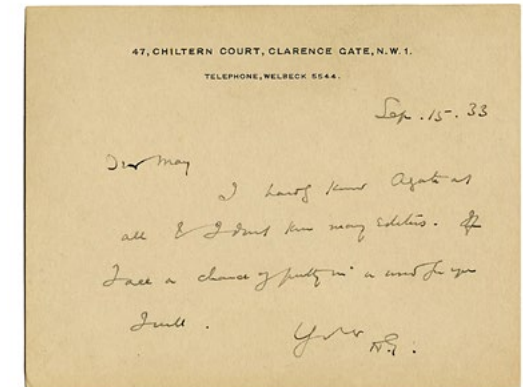 47, CHILTERN COURT, CLARENCE GATE, N.W.1.
TELEPHONE, WELBECK 5544.
Sep. 15. 33
Dear May
I hardly know Agate at
all & I don't know many Editors. If
I see a chance of putting in a word for you
I will.
Yours
H.G.